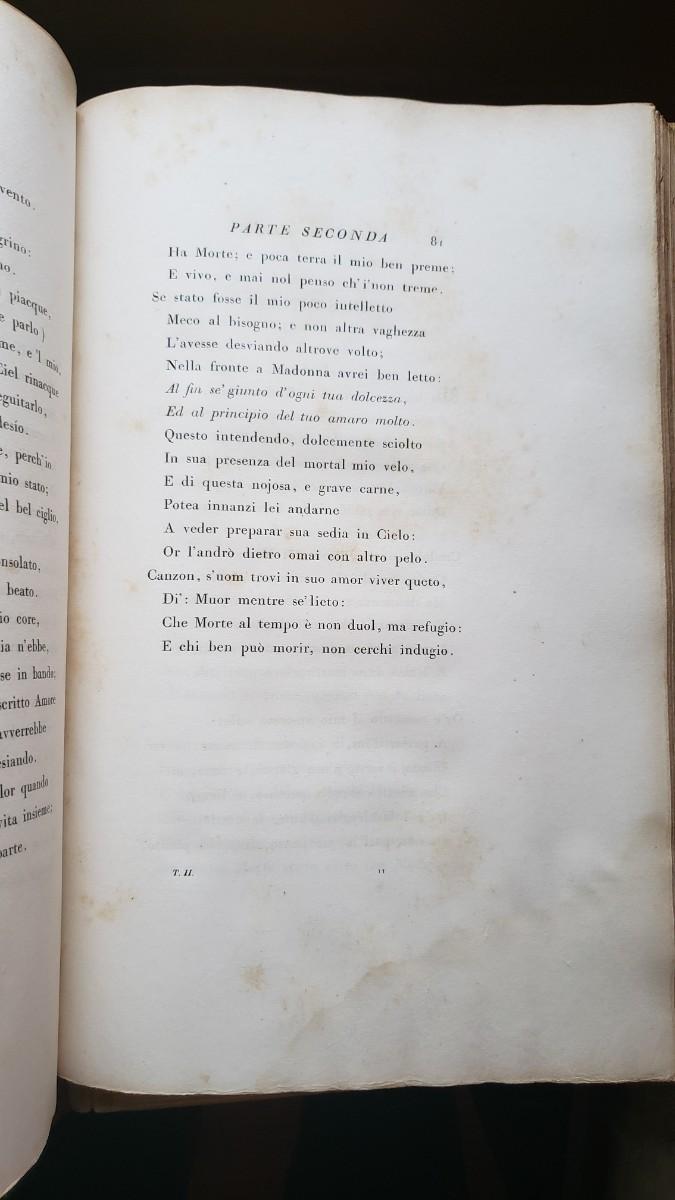 vento.
grino:
no.
piacque,
e parlo)
me, e'l mio.
Ciel rinacque
eguitarlo,
desio.
e, perch'io
mio stato;
el bel ciglio,
nsolato,
beato.
io core,
ia n'ebbe,
se in bando;
scritto Amore
avverrebbe
siando.
lor quando
vita insieme;
parte.
PARTE SECONDA 81
Ha Morte; e poca terra il mio ben preme;
E vivo, e mai nol penso ch'i'non treme.
Se stato fosse il mio poco intelletto
Meco al bisogno; e non altra vaghezza
L'avesse desviando altrove volto;
Nella fronte a Madonna avrei ben letto:
Al fin se'giunto d'ogni tua dolcezza,
Ed al principio del tuo amaro molto.
Questo intendendo, dolcemente sciolto
In sua presenza del mortal mio velo,
E di questa nojosa, e grave carne,
Potea innanzi lei andarne
A veder preparar sua sedia in Cielo:
Or l'andrò dietro omai con altro pelo.
Canzon, s'uom trovi in suo amor viver queto,
Di': Muor mentre se'lieto:
Che Morte al tempo è non duol, ma refugio:
E chi ben può morir, non cerchi indugio.
T. II. 11